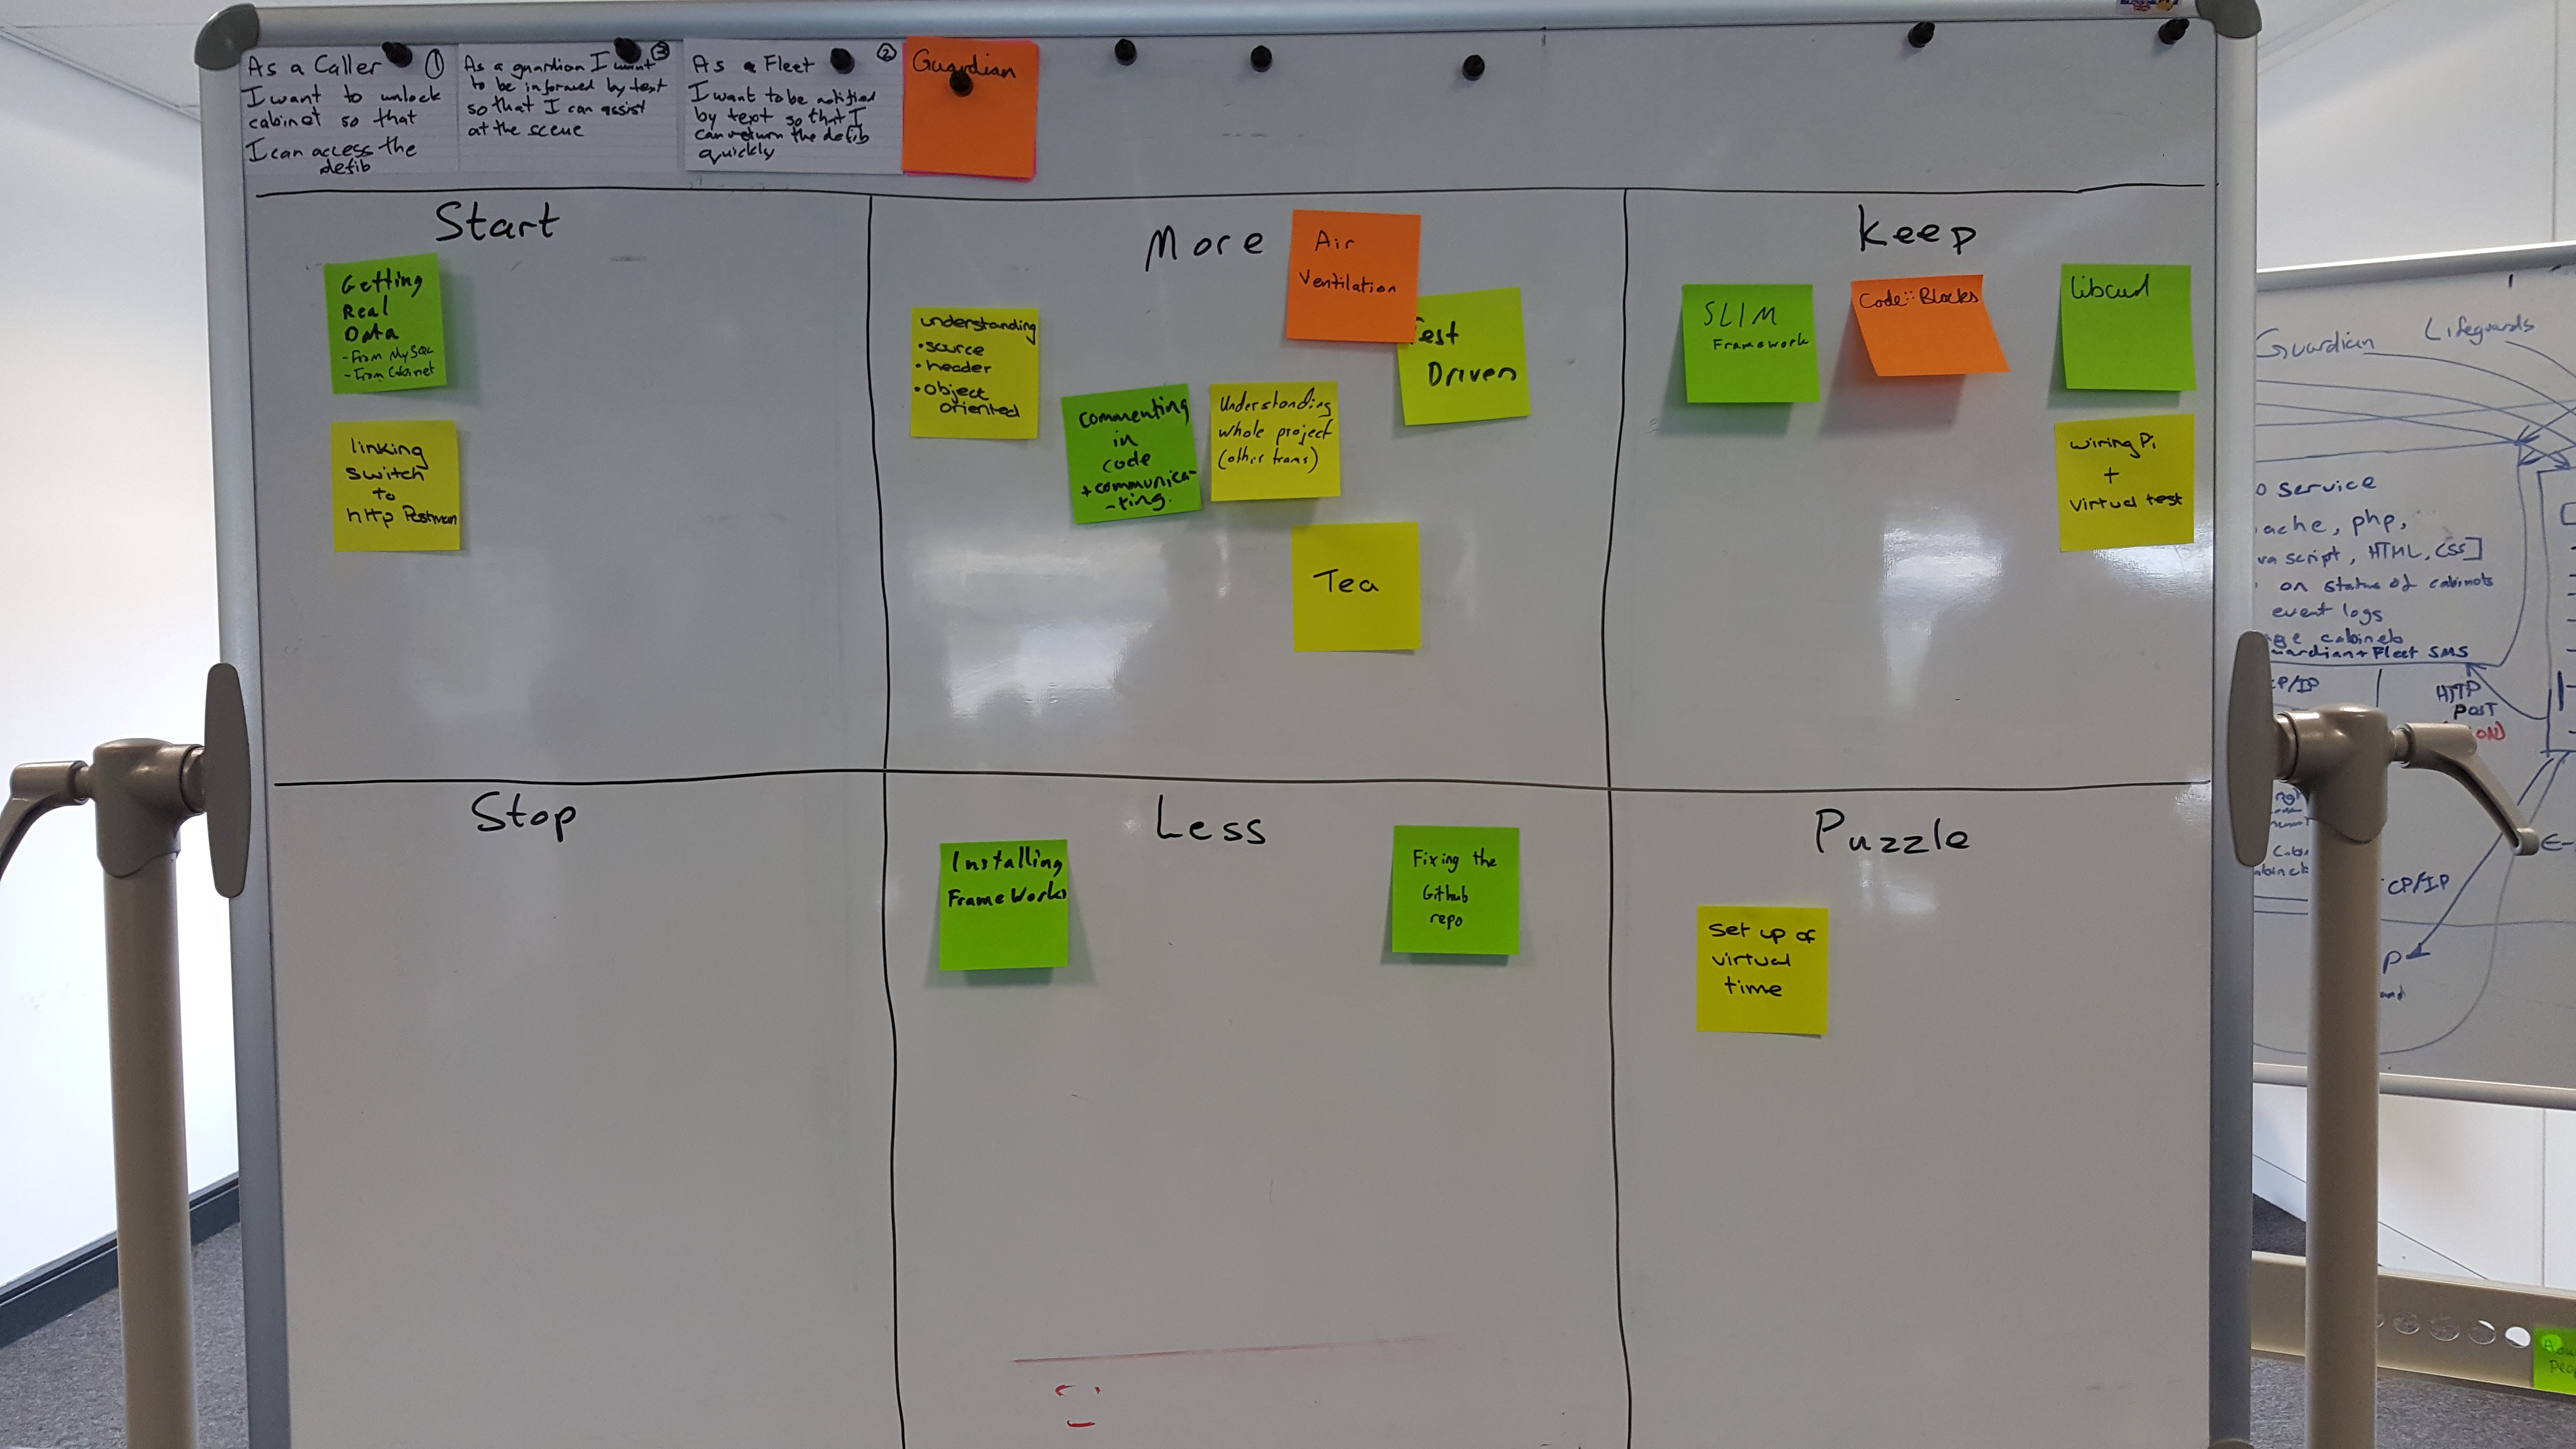 As a Caller ①
I want to unlock
cabinet so that
I can access the
defib
As a guardian I want ③
to be informed by text
so that I can assist
at the scene
As a Fleet ②
I want to be notified
by text so that I
can return the defib
quickly
Guardian
Start
Getting
Real
Data
- From MySQL
- From Cabinet
linking
switch
to
http Postman
More
Air
Ventilation
understanding
• source
• header
• object
oriented
commenting
in
code
+ communica-
-ting.
Understanding
whole project
(other teams)
Test
Driven
Tea
Keep
SLIM
Framework
Code::Blocks
libcurl
wiringPi
+
virtual test
Stop
Less
Installing
FrameWorks
Fixing the
Github
repo
Puzzle
Set up of
virtual
time
Guardian Lifeguards
service
php,
script, HTML, CSS]
on status of cabinets
event logs
cabinets
Fleet SMS
HTTP
POST